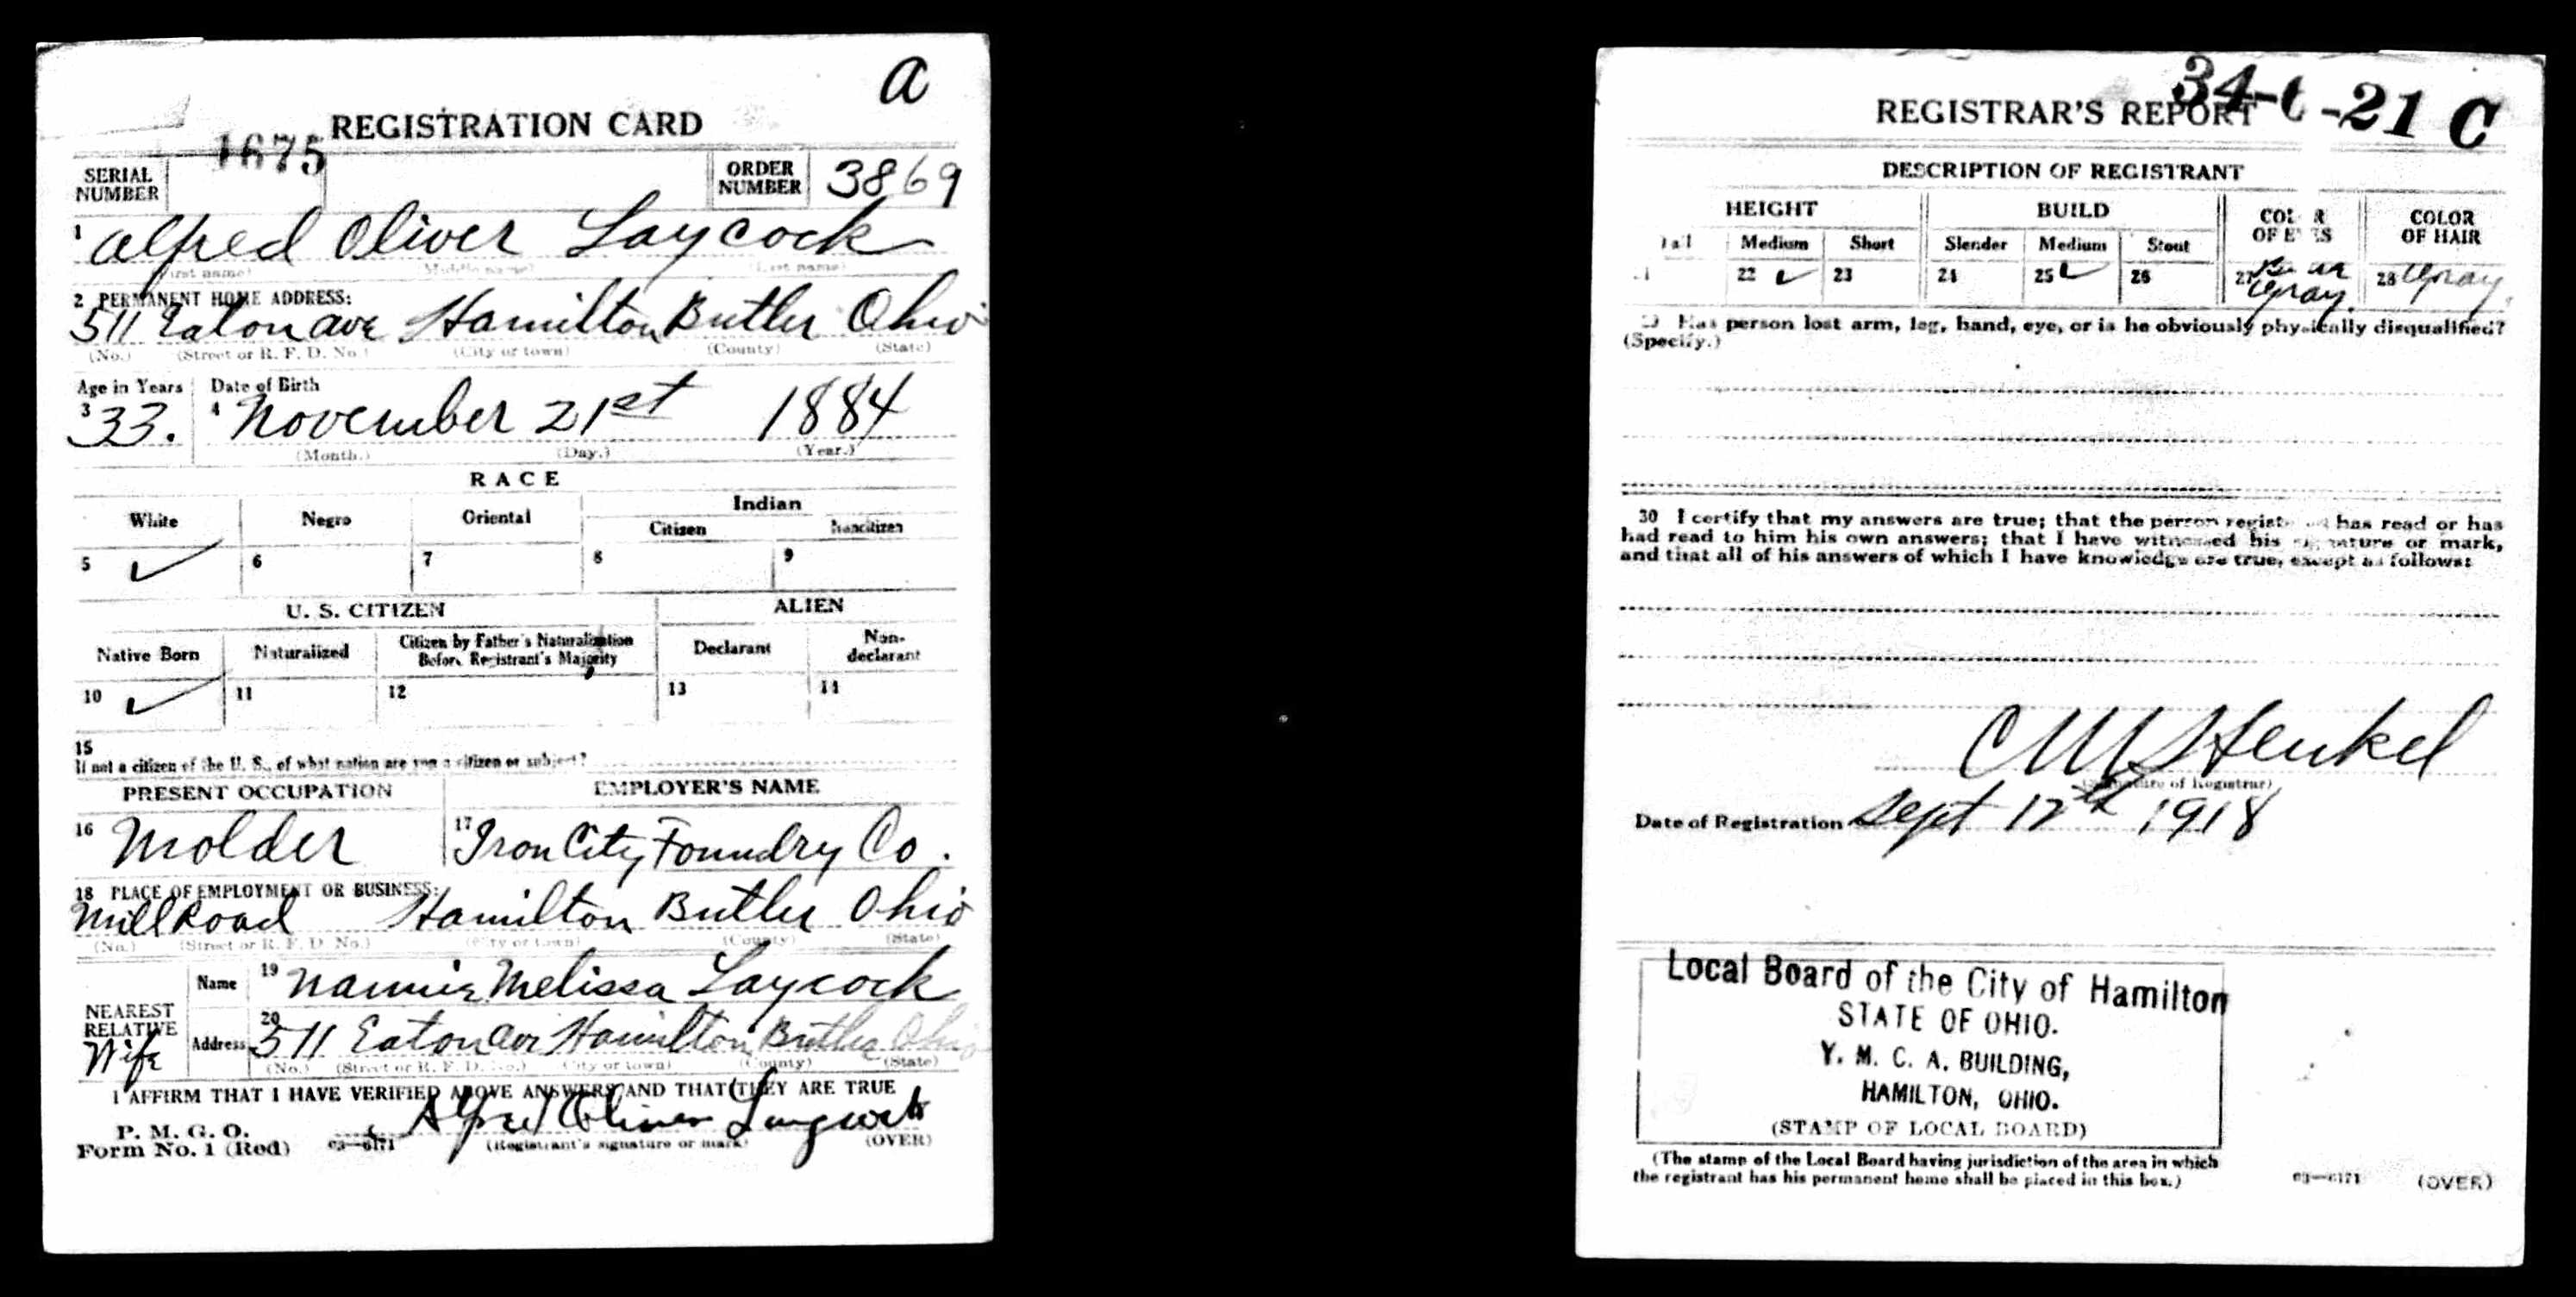 a
REGISTRATION CARD
SERIAL NUMBER 1675 ORDER NUMBER 3869
1 Alfred Oliver Laycock
(First name) (Middle name) (Last name)
2 PERMANENT HOME ADDRESS:
511 Eaton ave Hamilton Butler Ohio
(No.) (Street or R. F. D. No.) (City or town) (County) (State)
Age in Years Date of Birth
3 33. 4 November 21st 1884
(Month.) (Day.) (Year.)
RACE
White Negro Oriental Indian
Citizen Noncitizen
5 ✓ 6 7 8 9
U. S. CITIZEN ALIEN
Native Born Naturalized Citizen by Father's Naturalization Before Registrant's Majority Declarant Non-declarant
10 ✓ 11 12 13 14
15
If not a citizen of the U. S., of what nation are you a citizen or subject?
PRESENT OCCUPATION EMPLOYER'S NAME
16 Molder 17 Iron City Foundry Co.
18 PLACE OF EMPLOYMENT OR BUSINESS:
Mill Road Hamilton Butler Ohio
(No.) (Street or R. F. D. No.) (City or town) (County) (State)
NEAREST RELATIVE Wife
Name 19 Nannie Melissa Laycock
Address 20 511 Eaton ave Hamilton Butler Ohio
(No.) (Street or R. F. D. No.) (City or town) (County) (State)
I AFFIRM THAT I HAVE VERIFIED ABOVE ANSWERS AND THAT THEY ARE TRUE
P. M. G. O.
Form No. 1 (Red) 03—6171 Alfred Oliver Laycock
(Registrant's signature or mark) (OVER)
34- -21 C
REGISTRAR'S REPORT
DESCRIPTION OF REGISTRANT
HEIGHT BUILD COLOR OF EYES COLOR OF HAIR
Tall Medium Short Slender Medium Stout
21 22 ✓ 23 24 25 ✓ 26 27 Gray. 28 Gray.
29 Has person lost arm, leg, hand, eye, or is he obviously physically disqualified?
(Specify.)
30 I certify that my answers are true; that the person registered has read or has
had read to him his own answers; that I have witnessed his signature or mark,
and that all of his answers of which I have knowledge are true, except as follows:
C M Henkel
(Signature of Registrar)
Date of Registration Sept 12th 1918
Local Board of the City of Hamilton
STATE OF OHIO.
Y. M. C. A. BUILDING,
HAMILTON, OHIO.
(STAMP OF LOCAL BOARD)
(The stamp of the Local Board having jurisdiction of the area in which
the registrant has his permanent home shall be placed in this box.)
03—6171 (OVER)